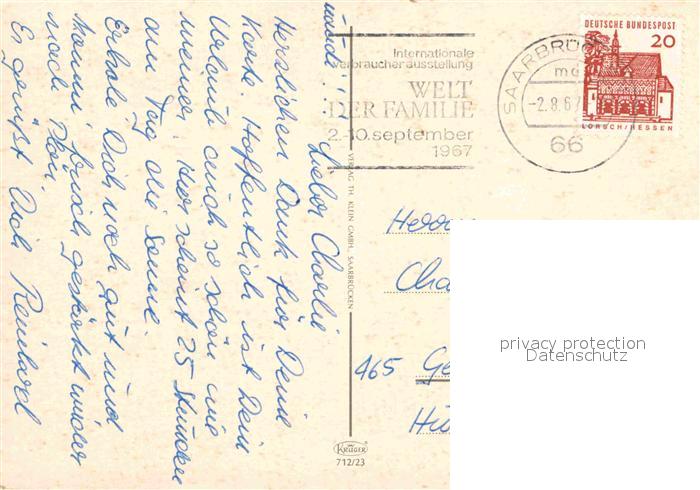 Lieber Charlie
Herzlichen Dank für Deine
Karte. Hoffentlich ist Dein
Urlaub auch so schön wie
meiner. Hier scheint 25 Stunden
am Tag die Sonne.
Erhole Dich noch gut und
komm frisch gestärkt wieder
nach
Es grüßt Dich Reinhard
Internationale
Verbraucherausstellung
WELT
DER FAMILIE
2.-10. september
1967
SAARBRÜC
-2.8.67
66
DEUTSCHE BUNDESPOST
20
LORSCH/HESSEN
VERLAG TH. KLEIN GMBH., SAARBRÜCKEN
KRÜGER
712/23
Herrn
Cha
465 Ge
privacy protection
Datenschutz